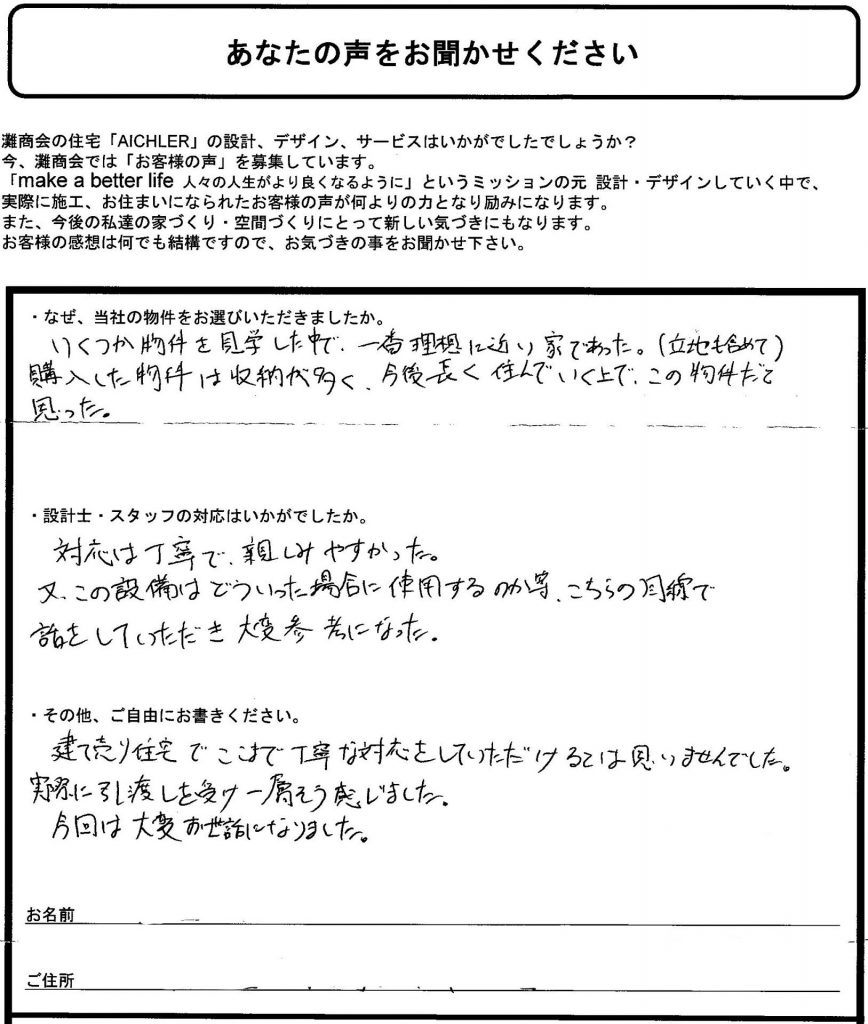 あなたの声をお聞かせください
灘商会の住宅「AICHLER」の設計、デザイン、サービスはいかがでしたでしょうか？
今、灘商会では「お客様の声」を募集しています。
「make a better life 人々の人生がより良くなるように」というミッションの元 設計・デザインしていく中で、
実際に施工、お住まいになられたお客様の声が何よりの力となり励みになります。
また、今後の私達の家づくり・空間づくりにとって新しい気づきにもなります。
お客様の感想は何でも結構ですので、お気づきの事をお聞かせ下さい。
・なぜ、当社の物件をお選びいただきましたか。
いくつか物件を見学した中で、一番理想に近い家であった。（立地も含めて）
購入した物件は収納が多く、今後長く住んでいく上で、この物件だと
思った。
・設計士・スタッフの対応はいかがでしたか。
対応は丁寧で、親しみやすかった。
又、この設備はどういった場合に使用するのか等、こちらの目線で
話をしていただき大変参考になった。
・その他、ご自由にお書きください。
建て売り住宅でここまで丁寧な対応をしていただけるとは思いませんでした。
実際に引渡しを受け一層そう感じました。
今回は大変お世話になりました。
お名前
ご住所